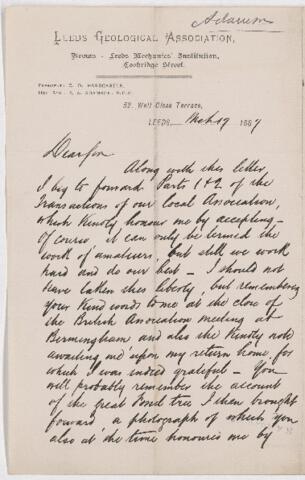 Adamson
LEEDS GEOLOGICAL ASSOCIATION,
Rooms - Leeds Mechanics' Institution,
Cookridge Street.
52, Well Close Terrace,
LEEDS, Mch 19 1887
Dear Sir
Along with this letter
I beg to forward Parts 1 & 2 of the
Transactions of our local Association,
which kindly honour me by accepting -
Of course, it can only be termed the
work of amateurs, but still we work
hard and do our best - I should not
have taken this liberty, but remembering
your kind words to me at the close of
the British Association meeting at
Birmingham and also the kindly note
awaiting me upon my return home, for
which I was indeed grateful - You
will probably remember the account
of the great Fossil tree I then brought
forward, a photograph of which you
also at the time honoured me by